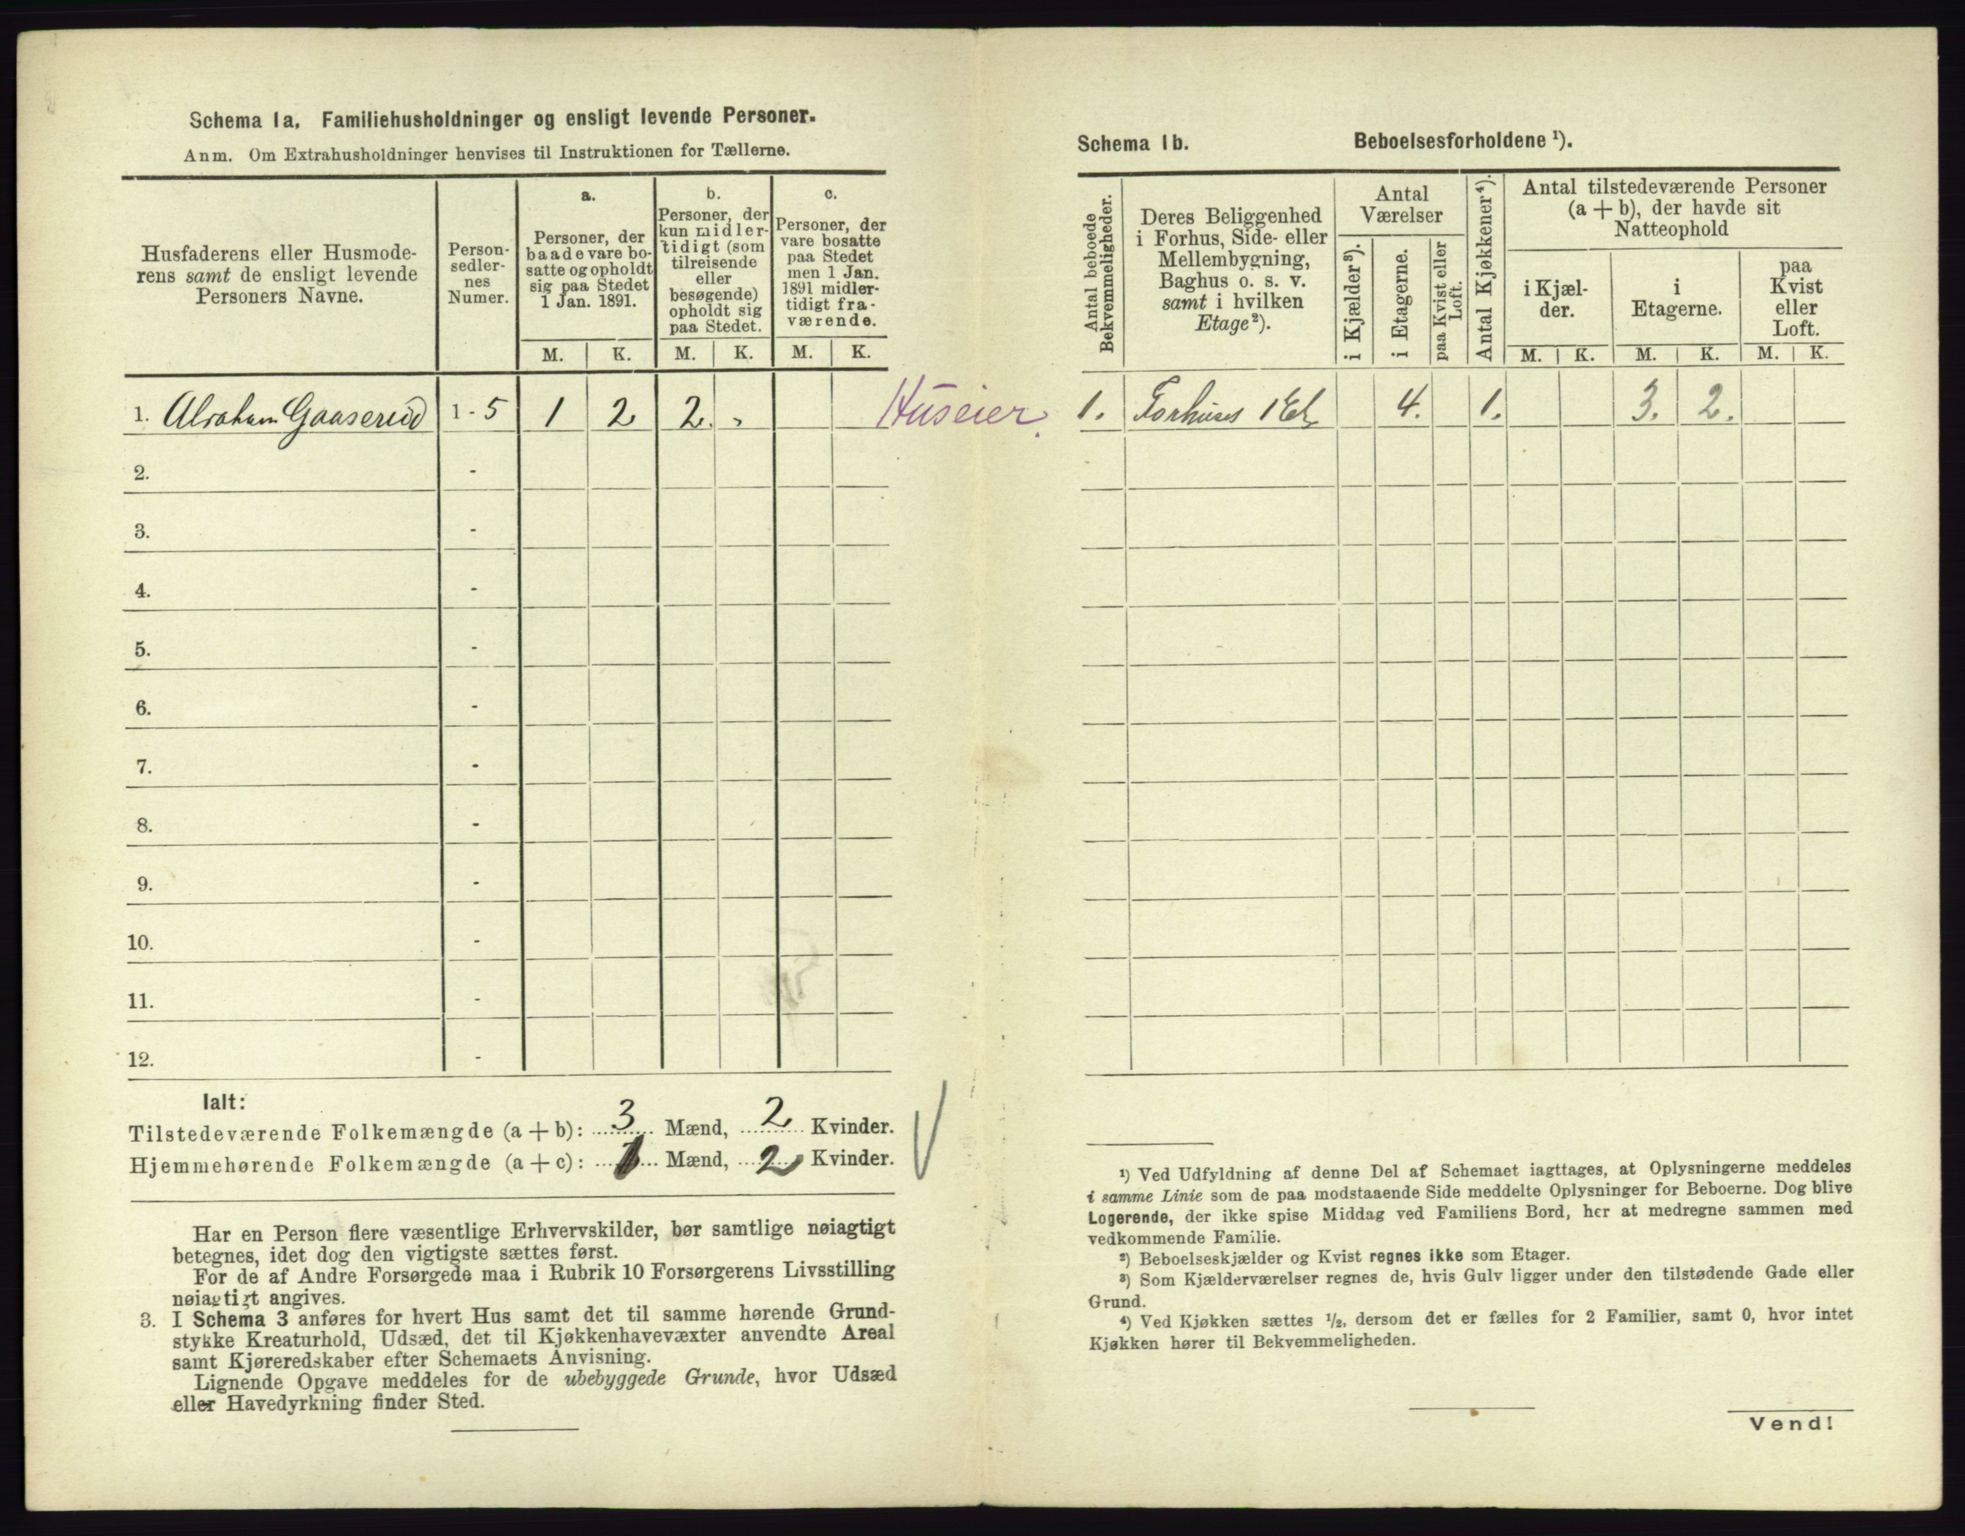 Schema 1a. Familiehusholdninger og ensligt levende Personer.
Anm. Om Extrahusholdninger henvises til Instruktionen for Tællerne.
Husfaderens eller Husmode-
rens samt de ensligt levende
Personers Navne.
Person-
sedler-
nes
Numer.
a.
Personer, der
baade vare bo-
satte og opholdt
sig paa Stedet
1 Jan. 1891.
b.
Personer, der
kun midler-
tidigt (som
tilreisende
eller
besøgende)
opholdt sig
paa Stedet.
c.
Personer, der
vare bosatte
paa Stedet
men 1 Jan.
1891 midler-
tidigt fra-
værende.
M. K. M. K. M. K.
1. Abraham Gaaserud 1 - 5 1 2 2. Huseier.
2. -
3. -
4. -
5. -
6. -
7. -
8. -
9. -
10. -
11. -
12. -
Ialt:
Tilstedeværende Folkemængde (a + b): 3 Mænd, 2 Kvinder.
Hjemmehørende Folkemængde (a + c): 1 Mænd, 2 Kvinder.
Har en Person flere væsentlige Erhvervskilder, bør samtlige nøiagtigt
betegnes, idet dog den vigtigste sættes først.
For de af Andre Forsørgede maa i Rubrik 10 Forsørgerens Livsstilling
nøiagtigt angives.
3. I Schema 3 anføres for hvert Hus samt det til samme hørende Grund-
stykke Kreaturhold, Udsæd, det til Kjøkkenhavevæxter anvendte Areal
samt Kjøreredskaber efter Schemaets Anvisning.
Lignende Opgave meddeles for de ubebyggede Grunde, hvor Udsæd
eller Havedyrkning finder Sted.
Schema 1b. Beboelsesforholdene ¹).
Antal beboede
Bekvemmeligheder.
Deres Beliggenhed
i Forhus, Side- eller
Mellembygning,
Baghus o. s. v.
samt i hvilken
Etage²).
Antal
Værelser
i Kjælder³).
i Etagerne.
paa Kvist eller
Loft.
Antal Kjøkkener⁴).
Antal tilstedeværende Personer
(a + b), der havde sit
Natteophold
i Kjæl-
der.
i
Etagerne.
paa
Kvist
eller
Loft.
M. K. M. K. M. K.
1. Forhuus 1 Et. 4. 1. 3. 2.
¹) Ved Udfyldning af denne Del af Schemaet iagttages, at Oplysningerne meddeles
i samme Linie som de paa modstaaende Side meddelte Oplysninger for Beboerne. Dog blive
Logerende, der ikke spise Middag ved Familiens Bord, her at medregne sammen med
vedkommende Familie.
²) Beboelseskjælder og Kvist regnes ikke som Etager.
³) Som Kjælderværelser regnes de, hvis Gulv ligger under den tilstødende Gade eller
Grund.
⁴) Ved Kjøkken sættes ½, dersom det er fælles for 2 Familier, samt 0, hvor intet
Kjøkken hører til Bekvemmeligheden.
Vend!